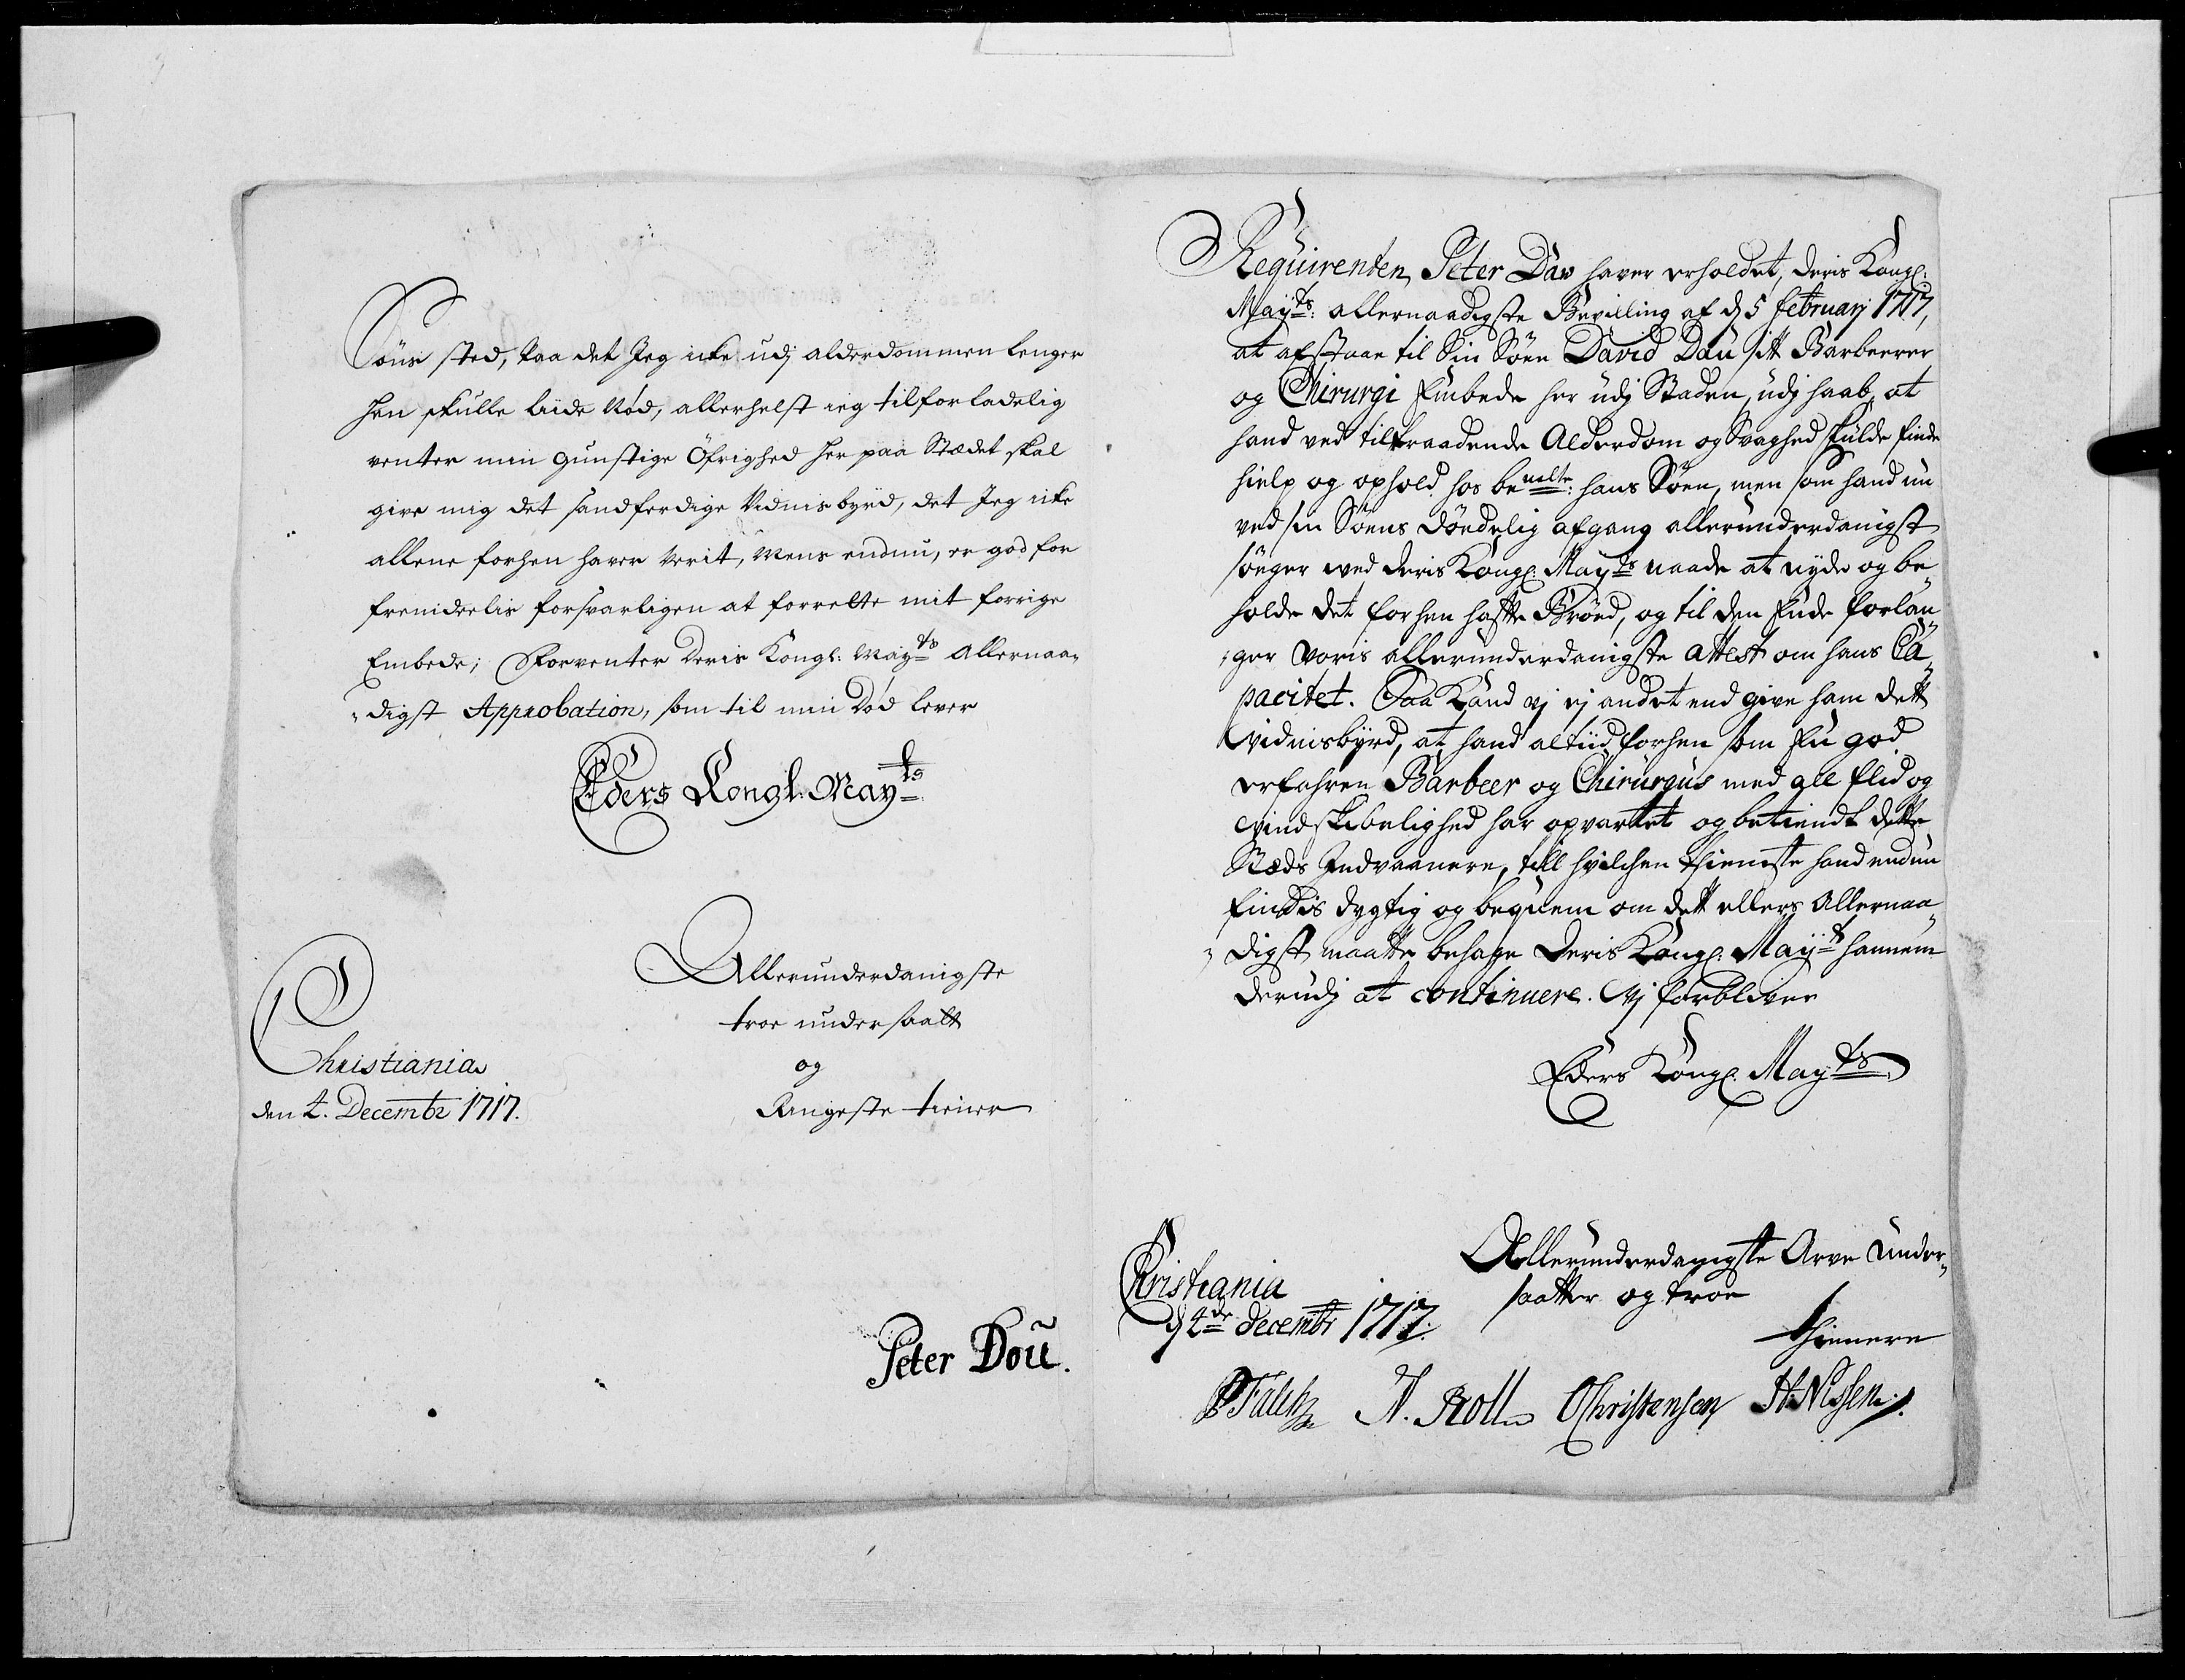 Söns sted, Paa det Jeg icke udj alderdommen lenger
hen skulle liide Nød, allerhelst ieg tilforladelig
venter min gunstige Öfrighed her paa Stædet skal
give mig det sandferdige Vidnisbyrd, det Jeg icke
allene forhen haver Verit, Mens endnu, er god for
fremdeelis forsvarligen at forrette mit forrige
Embede; Forventer Deris Kongl: Mayts Allernaa-
digst Approbation, som til min Død lever
Eders Kongl. Mayts
Allerunderdanigste
troe undersaatt
og
Ringeste tiener
Christiania
den 4. Decembr 1717.
Peter Doü.
Requirenten Peter Dav haver erholdet, Deris Kongl:
Mayts: allernaadigste Bevilling af d 5 februarj 1717,
at afstaae til Sin Söen David Dau sitt Barbeerer
og Chirurgi Embede her udj Staden, udj haab, at
hand ved tiltraadende Alderdom og Svaghed skulde finde
hielp og ophold hos bemelte: hans Söen, men som hand nu
ved sin Söens Dödelig afgang allerunderdanigst
söger med Deris Kongl: Mayts naade at nyde og be-
holde det forhen hafte Bröed, og til den Ende forlan-
ger Voris allerunderdanigste attest om hans Ca-
pacitet. Saa Kand vj ej andet end give ham dett
Vidnisbyrd, at hand altiid forhen som En god
erfahren Barbeer og Chirurgus med all flid og
Vindskibelighed har opvartet og betiendt dette
Stæds Indvaanere, till hvilchen thieniste hand endnu
findis dygtig og beqvem om dett ellers Allernaa-
digst maatte behage Deris Kongl: Mayt hannem
derudj at continuere. Vj forbliver
Eders Kongl: Mayts
Christiania
d 4de decembr 1717.
Allerunderdanigste Arve Under-
saatter og troe
thienere
P Falch N. Roll Christensen H Nissen